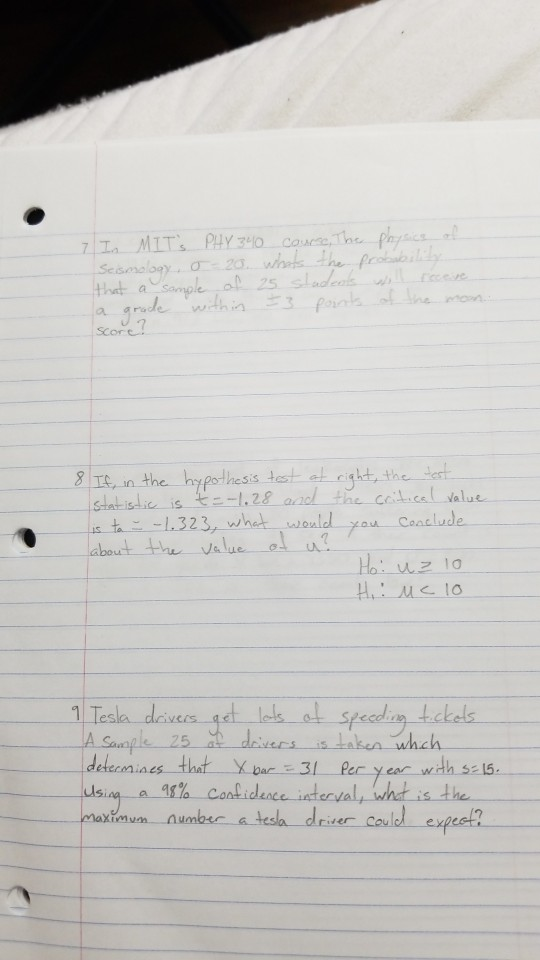 7 In MIT's PHY 340 course, The physics of
Seismology. σ = 20. whats the probability
that a sample of 25 students will receve
a grade within ±3 points of the mean
score?
8 If, in the hypothesis test at right, the test
statistic is t = -1.28 and the critical value
is ta = -1.323, what would you conclude
about the value of u?
Ho: u ≥ 10
H1: u < 10
9 Tesla drivers get lots of speeding tickets
A Sample 25 of drivers is taken which
determines that X bar = 31 Per year with s=15.
Using a 98% Confidence interval, what is the
maximum number a tesla driver could expect?